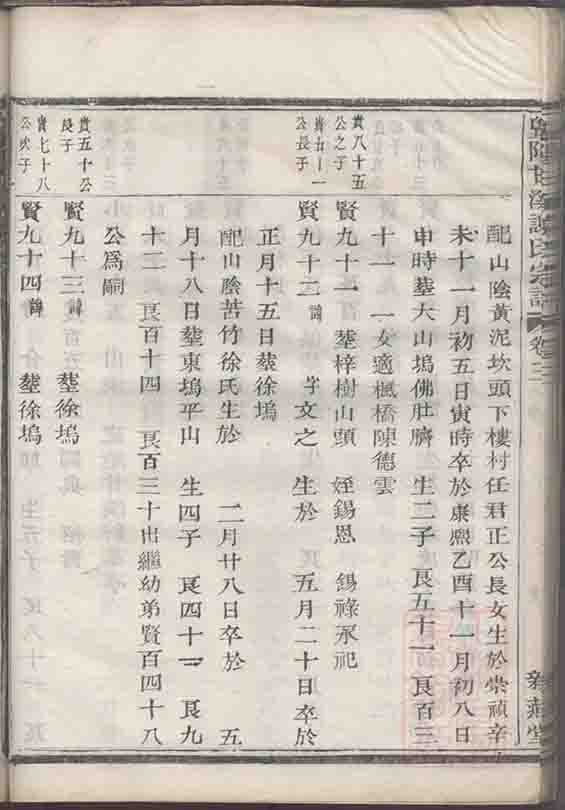 配山陰黃泥坎頭下樓村任君正公長女生於崇禎辛
未十一月初五日寅時卒於康熙乙酉十一月初八日
申時塟大山塢佛肚臍 生二子 良五十一 良百三
十一 一女適楓橋陳德雲
貴八十五
公之子
賢九十一 塟梓樹山頭 姪錫恩 錫祿承祀
公長子
賢九十二 諱 字文之 生於 五月二十日卒於
正月十五日塟徐塢
配山陰苦竹徐氏生於 二月廿八日卒於 五
月十八日塟東塢平山 生四子 良四十一 良九
十二 良百十四 良百三十出繼幼弟賢百四十八
公爲嗣
貴五十公
長子
賢九十三 諱 塟徐塢
貴七十八
公次子
賢九十四 諱 塟徐塢
謝氏宗譜 卷三